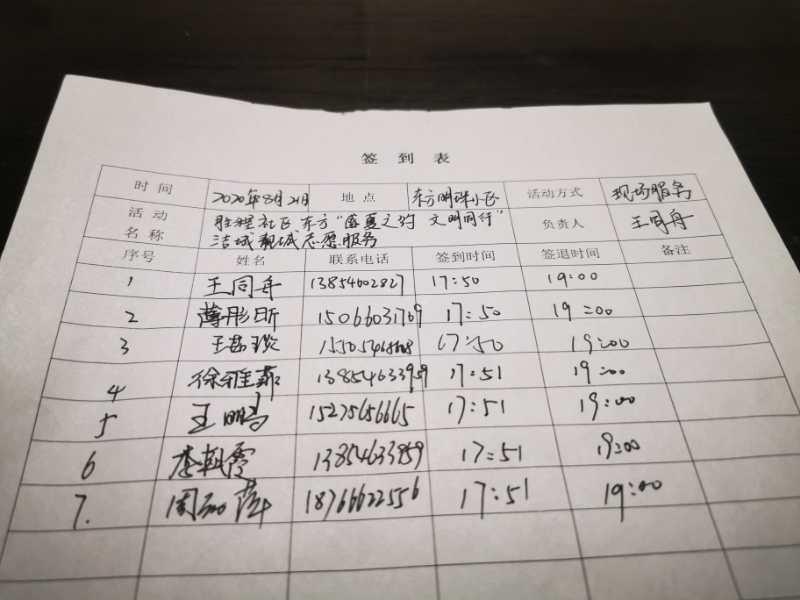 签到表
时间 2020年8月21日 地点 东方明珠小区 活动方式 现场服务
活动名称 胜利社区东方“盛夏之约 文明同行” 负责人 王同舟
洁城靓城志愿服务
序号 姓名 联系电话 签到时间 签退时间 备注
1 王同舟 13854602827 17:50 19:00
2 薄彤昕 15066031769 17:50 19:00
3 17:50 19:00
4 徐雅茹 13854633959 17:51 19:00
5 王鹏 15275656665 17:51 19:00
6 李朝霞 13854633959 17:51 19:00
7. 周 萍 18766622556 17:51 19:00